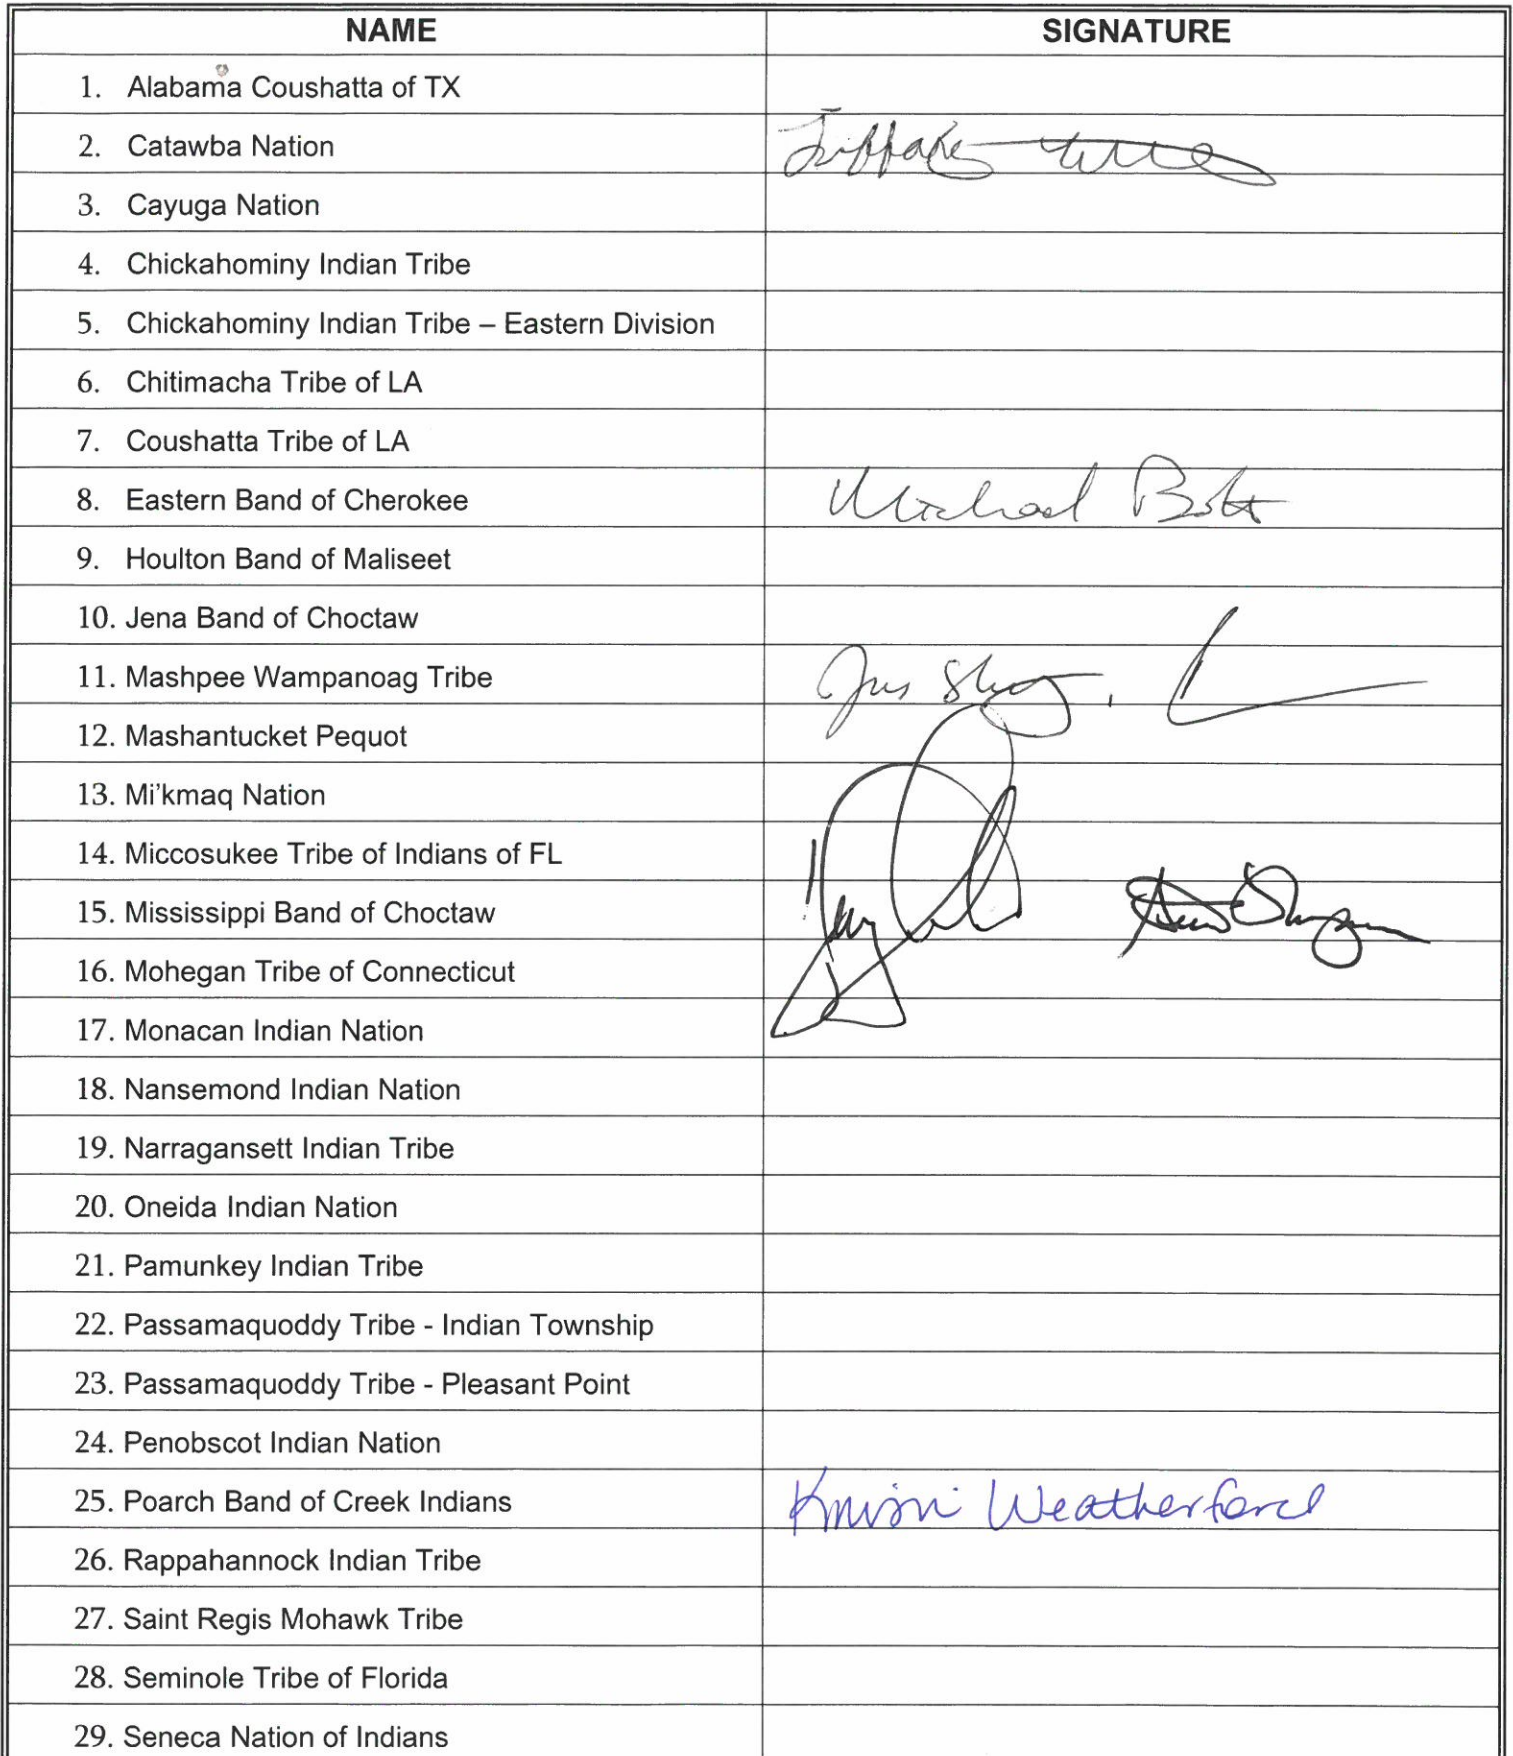 NAME SIGNATURE
1. Alabama Coushatta of TX
2. Catawba Nation
3. Cayuga Nation
4. Chickahominy Indian Tribe
5. Chickahominy Indian Tribe – Eastern Division
6. Chitimacha Tribe of LA
7. Coushatta Tribe of LA
8. Eastern Band of Cherokee Michael
9. Houlton Band of Maliseet
10. Jena Band of Choctaw
11. Mashpee Wampanoag Tribe
12. Mashantucket Pequot
13. Mi'kmaq Nation
14. Miccosukee Tribe of Indians of FL
15. Mississippi Band of Choctaw
16. Mohegan Tribe of Connecticut
17. Monacan Indian Nation
18. Nansemond Indian Nation
19. Narragansett Indian Tribe
20. Oneida Indian Nation
21. Pamunkey Indian Tribe
22. Passamaquoddy Tribe - Indian Township
23. Passamaquoddy Tribe - Pleasant Point
24. Penobscot Indian Nation
25. Poarch Band of Creek Indians Weatherford
26. Rappahannock Indian Tribe
27. Saint Regis Mohawk Tribe
28. Seminole Tribe of Florida
29. Seneca Nation of Indians